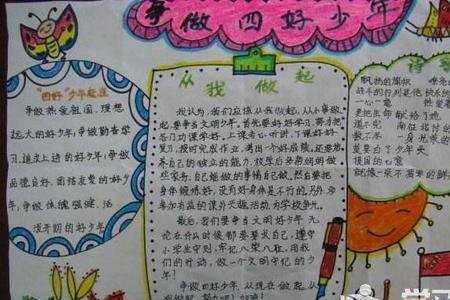 争做四好少年
"四好"少年赵庭
争做热爱祖国、理想
远大的好少年；争做勤奋学
习、追求上进的好少年；争做
品德良好、团结友爱的好少
年；争做体魄强健、活
泼开朗的好少年
从我做起
我认为，我们应该从我做起，从小事做
起，要争当文明少年。首先要好好学习，将才把
各门功课学好。上课专心听讲，下课好好
复习，按时完成作业，考出一个好成绩。还要培
养自己的独立的能力，放学后多帮妈妈做
些家务，自己能做的事情自己做。然后要把
身体锻炼好，没有好身体是不行的。另外，多
参加有益的课外文娱活动，为学校争光。
最后，我们要争当文明好少年，无
论在什么时候都要要求自己，遵守
小学生守则，牢记八荣八耻，用我
们的行动，做一个文明守纪的少
年！
争做四好少年，从现在做起，从
我做起，努力吧！加油！
诗歌
飘扬的旗帜
一心一意
更把生命献给了她
莫要白了少年头
祖国的心意